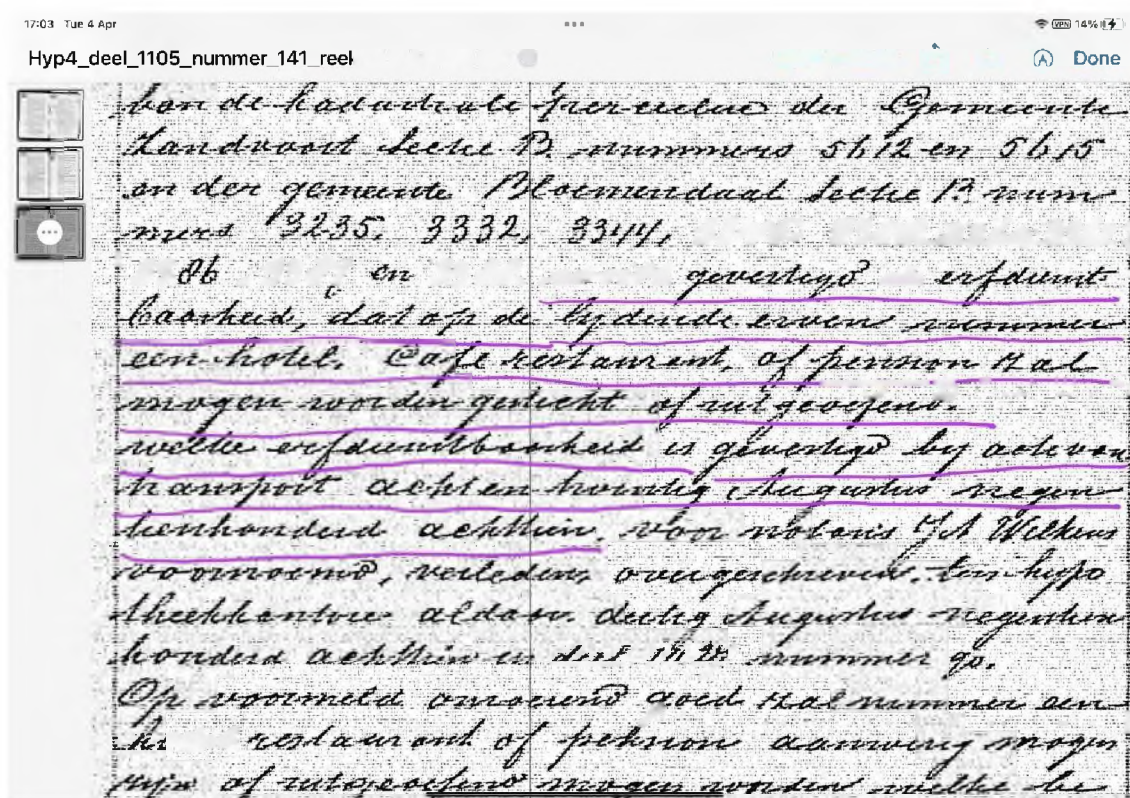 17:03 Tue 4 Apr
VPN 14%
Hyp4_deel_1105_nummer_141_reek
Done
van de kadastrale perceelen der Gemeente
Zandvoort Sectie B. nummers 5612 en 5615
en der gemeente Bloemendaal Sectie B num
mers 3235, 3332, 3344,
86 en gevestigd erfdienst
baarheid, dat op de lijdende erven nimmer
een hotel, Cafe restaurant, of pension zal
mogen worden gesticht of uitgeoefend.
welke erfdienstbaarheid is gevestigd bij acte van
transport achtentwintig Augustus negen
tienhonderd achttien, voor notaris Wilkens
voornoemd, verleden, overgeschreven ten hypo
theekkantore aldaar dertig Augustus negentien
honderd achttien in deel nummer 90.
Op voormeld onroerend goed zal nimmer een
restaurant of pension aanwezig mogen
zijn of uitgeoefend mogen worden welke be